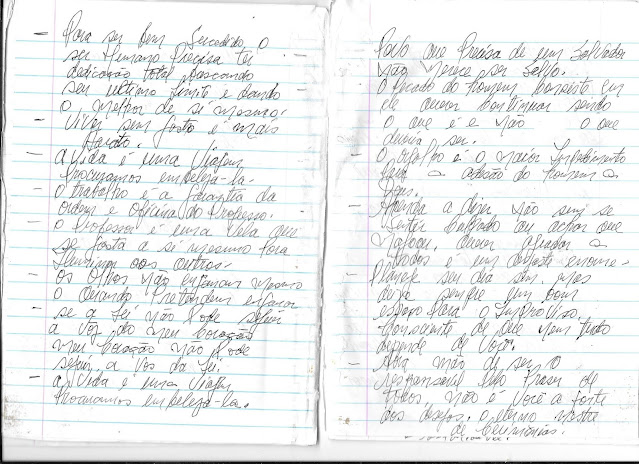 - Para ser Bem Sucedido o
ser Humano Precisa ter
dedicação total Buscando
seu ultimo limite e dando
o melhor de si mesmo.
- Viver sem gosto é mais
Barato.
- a Vida é uma Viajem
Procuramos embeleza-la.
o trabalho é a garantia da
ordem e oficina do Progresso.
- o Professor é uma vela que
se gasta a si mesmo para
iluminar aos outros.
- os olhos não enganam mesmo
o Quando Pretendem enganar
- se a Lei não Pode seguir
a voz do meu coração
meu coração não Pode
seguir a vos da Lei.
- a Vida é uma Viajem
Procuramos embeleza-la.
Povo que Precisa de um Salvador
não merece ser salvo.
o Pecado do homem consiste em
ele querer continuar sendo
o que é e não o que
deveria ser.
- o orgulho é o maior impedimento
para a do homem a
Deus.
- Aprenda a dizer não sem se
sentir culpado ou achar que
magoou. Querer agradar a
todos é um desgaste enorme.
- Planeje seu dia sim, mas
deixe sempre um bom
espaço Para o improviso.
consciente de que nem tudo
depende de você.
- Abra mão de ser o
responsável Pelo Prazer de
todos. não é você a fonte
dos desejos, o eterno mestre
de cerimônias.